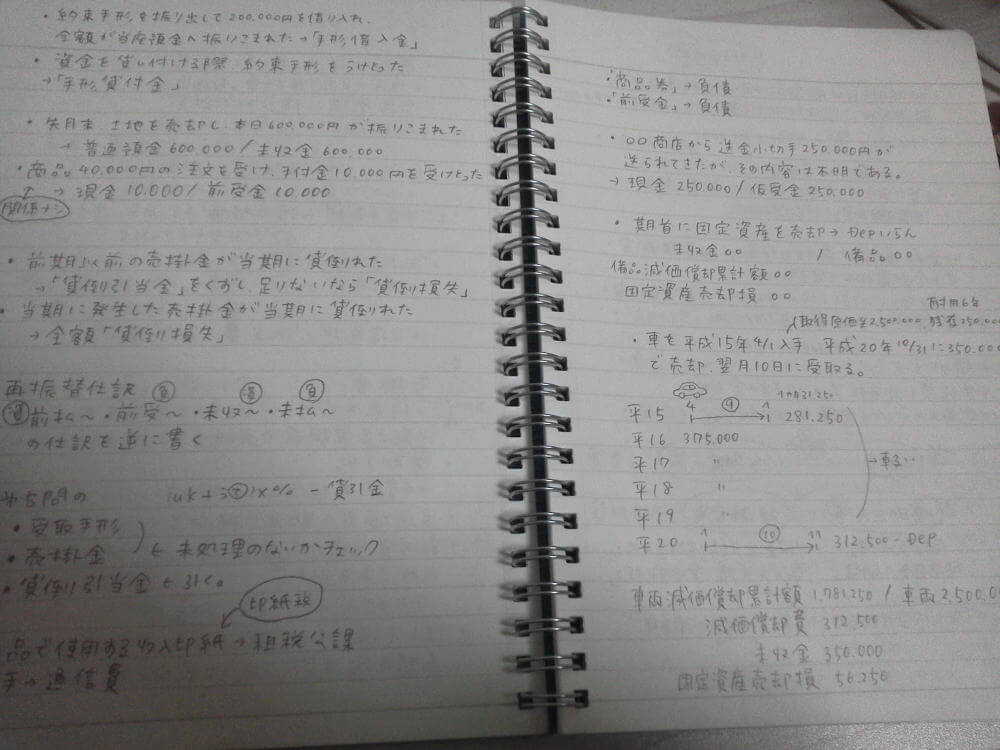 ・約束手形を振り出して200,000円を借り入れ、
全額が当座預金へ振りこまれた→「手形借入金」
・資金を貸し付ける際、約束手形をうけとった
→「手形貸付金」
・先月末、土地を売却し、本日600,000円が振りこまれた
→ 普通預金 600,000 / 未収金 600,000
・商品40,000円の注文を受け、手付金10,000円を受けとった
→ 現金 10,000 / 前受金 10,000
関係ナシ
・前期以前の売掛金が当期に貸倒れた
→「貸倒引当金」をくずし、足りないなら「貸倒損失」
・当期に発生した売掛金が当期に貸倒れた
→全額「貸倒り損失」
再振替仕訳 負 資 負
資 前払～・前受～・未収～・未払～
の仕訳を逆に書く
第5問の ）×% － 貸引金
・受取手形
・売掛金 ← 未処理のないかチェック
・貸倒り引当金を引く。
印紙税
品で使用する収入印紙→租税公課
手→通信費
・「商品券」→負債
・「前受金」→負債
・○○商店から送金小切手250,000円が
送られてきたが、その内容は不明である。
→ 現金 250,000 / 仮受金 250,000
・期首に固定資産を売却→Depいらん
未収金 ○○ / 備品 ○○
備品減価償却累計額 ○○
固定資産売却損 ○○
耐用6年
取得原価¥2,500,000、残存250,000
・車を平成15年4/1入手、平成20年10/31に350,000
で売却、翌月10日に受取る。
1カ月31,250
平15 4 ⑨ 281,250
平16 375,000
平17 〃
平18 〃
平19 〃
平20 ⑩ 312,500 - Dep
車両減価償却累計額 1,781,250 / 車両 2,500,0
減価償却費 312,500
未収金 350,000
固定資産売却損 56,250